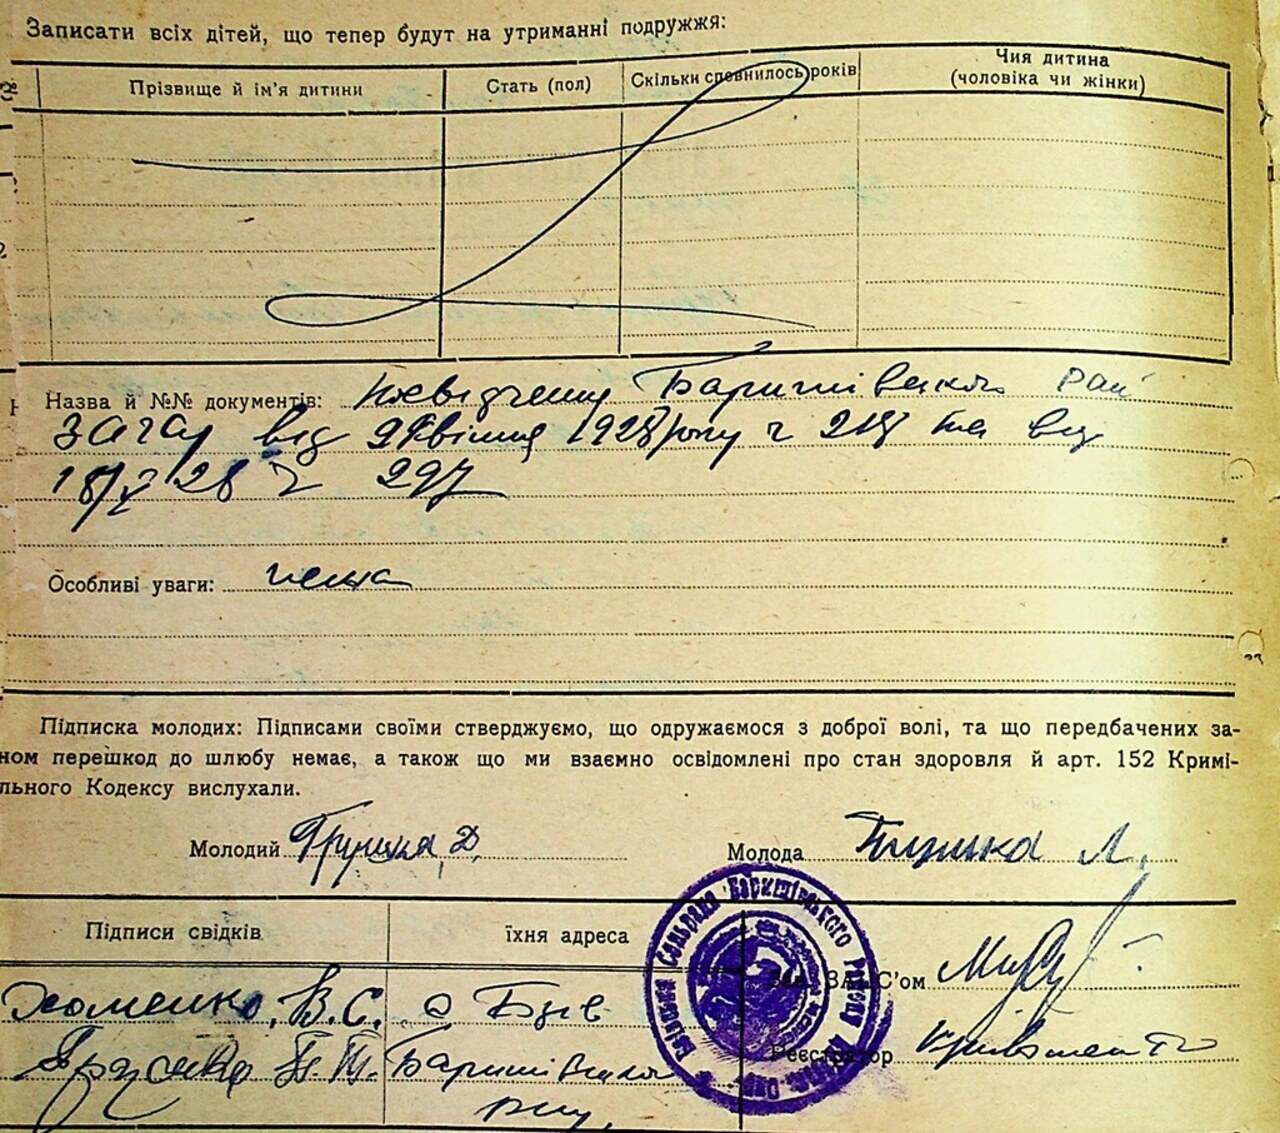 Записати всіх дітей, що тепер будут на утриманні подружжя:
Прізвище й ім'я дитини
Стать (пол)
Скільки сповнилось років
Чия дитина
(чоловіка чи жінки)
Назва й №№ документів: Посвідчення Баришівського Рай
загсу від 2 квітня 1928 року ч та від
18/X 28 ч 297
Особливі уваги: нема
Підписка молодих: Підписами своїми стверджуємо, що одружаємося з доброї волі, та що передбачених за-
ном перешкод до шлюбу немає, а також що ми взаємно освідомлені про стан здоровля й арт. 152 Кримі-
льного Кодексу вислухали.
Молодий Грушка Д.
Молода Л.
Підписи свідків
їхня адреса
ЗАГС'ом
Хоменко, В.С. с Бзів
Баришівського
Реєстратор
Сельрада Баришівського Району